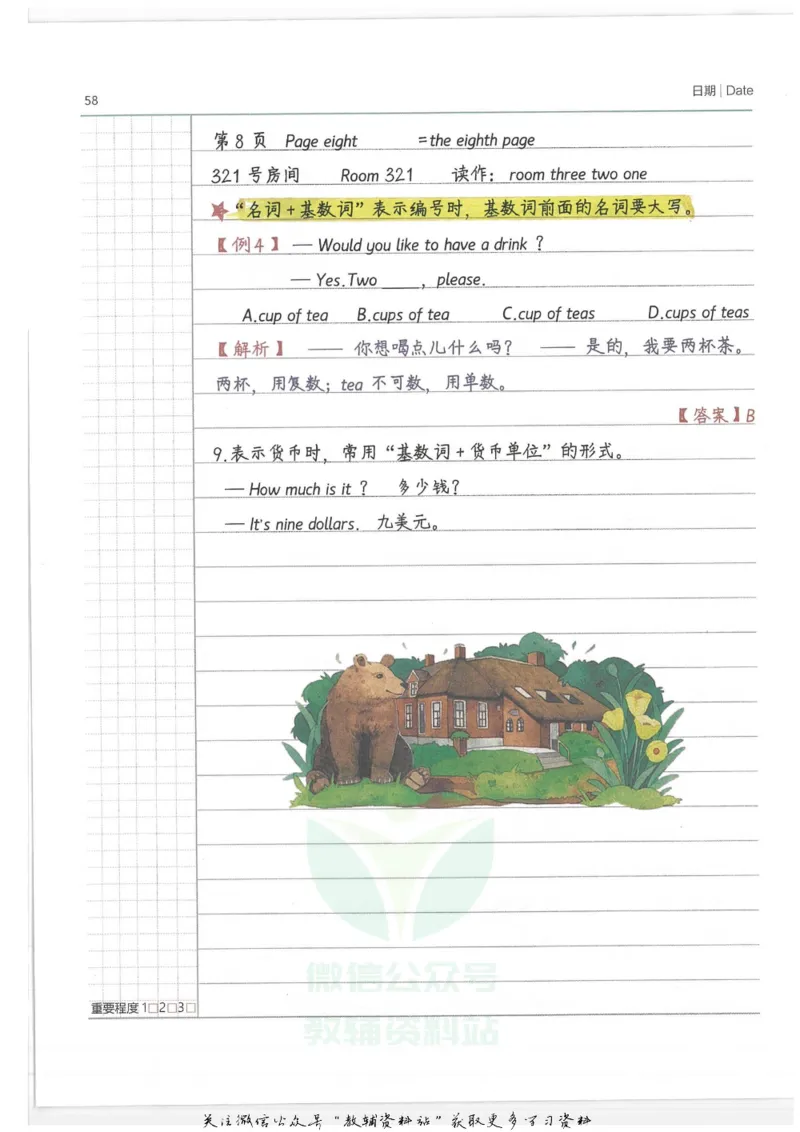 58
日期 | Date
第8页 Page eight =the eighth page
321号房间 Room 321 读作：room three two one
★“名词+基数词”表示编号时，基数词前面的名词要大写。
【例4】 — Would you like to have a drink ?
— Yes.Two ____ , please.
A.cup of tea B.cups of tea C.cup of teas D.cups of teas
【解析】 —— 你想喝点儿什么吗？ —— 是的，我要两杯茶。
两杯，用复数；tea 不可数，用单数。
【答案】B
9.表示货币时，常用“基数词+货币单位”的形式。
— How much is it ? 多少钱？
— It's nine dollars. 九美元。
微信公众号
教辅资料站
重要程度 1□2□3□
关注微信公众号“教辅资料站”获取更多学习资料